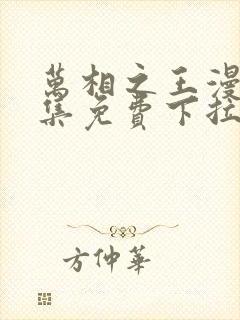 萬相之王漫
集免費下拉
方仲華